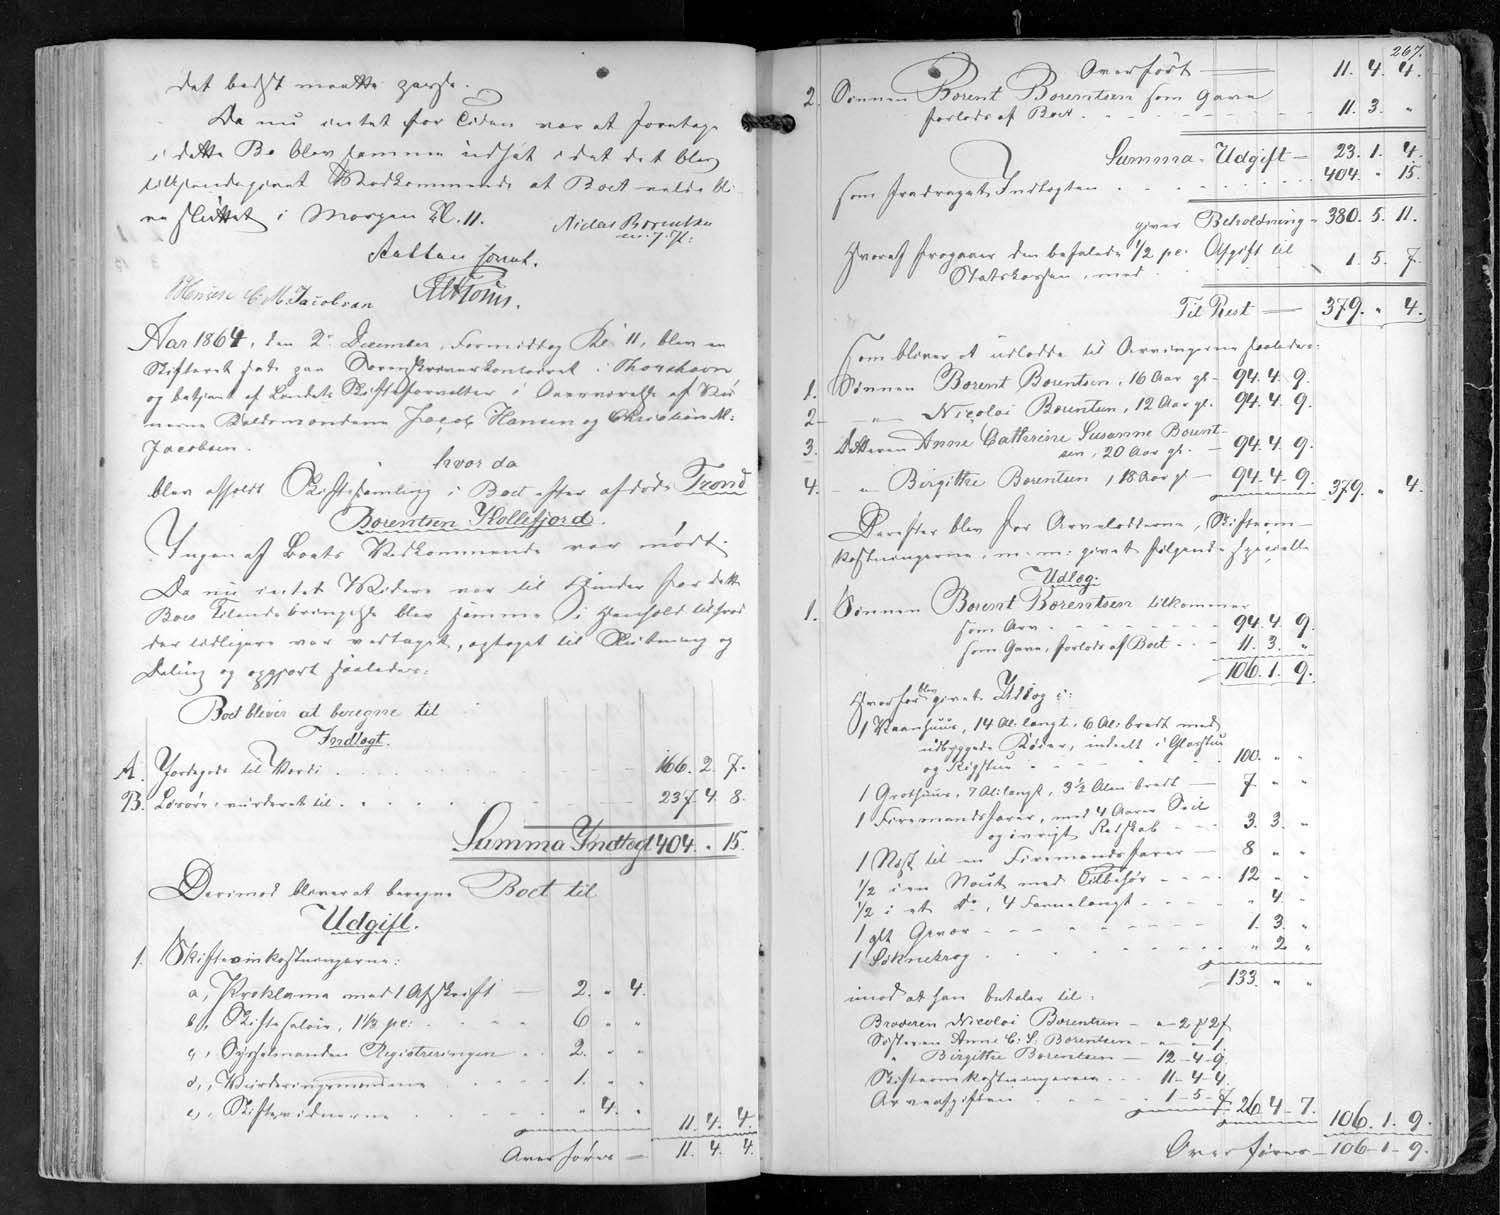 det bedst maatte passe.
Da nu intet for Tiden var at foretage
i dette Bo blev samme udsat idet det blev
tilkjendegivet Vedkommende at Boet vilde bli-
ve sluttet i Morgen Kl. 11. Niclas Borentsen
m. f. P.
Saltan sonat.
Hansen C. M. Jacobsen
Aar 1864, den 2' December, Formiddag Kl 11, blev en
Skifteret sat paa Sorenskriverkontoret i Thorshavn
og betjent af Landets Skifteforvalter i Overværelse af Vid-
nerne Boelsmændene Jacob Hansen og Christian M:
Jacobsen.
hvor da
blev afholdt Skiftesamling i Boet efter afdøde Trond
Borentsen Kollefjord.
Ingen af Boets Vedkommende var mødt.
Da nu intet Videre var til Hinder for dette
Boes Tilendebringelse blev samme i Henhold til hvad
der tidligere var vedtaget, optaget til Slutning og
Deling og opgjort saaledes:
Boet bliver at beregne til
Indtægt.
A. Jordegods til Værdi 166. 2. 7.
B. Løsøre, vurderet til 237. 4. 8.
Summa Indtægt 404. " 15.
Derimod bliver at beregne Boet til
Udgift.
1. Skifteomkostningerne:
a, Proklama med 1 Afskrift 2. " 4.
b, Skiftesalair, 1 1/2 pc: 6 " "
c, Sysselmanden Registreringen 2. " "
d, Vurderingsmændene 1. " "
e, Skiftevidnerne " 4. " 11. 4. 4.
Overføres 11. 4. 4.
267.
Overført 11. 4. 4.
2. Sønnen Borent Borentsen som Gave
forlods af Boet 11. 3. "
Summa Udgift 23. 1. 4.
som fradraget Indtægten 404. " 15.
giver Beholdning 380. 5. 11.
Hvoraf fragaaer den befalede 1/2 pc. Afgift til
Statskassen, med 1. 5. 7.
Til Rest 379. " 4.
som bliver at udlodde til Arvingerne saaledes:
1. Sønnen Borent Borentsen, 16 Aar gl. 94. 4. 9.
2 " Nicolai Borentsen, 12 Aar gl. 94. 4. 9.
3. Datteren Anne Cathrine Susanne Borent-
sen, 20 Aar gl. 94. 4. 9.
4. " Birgitthe Borentsen, 18 Aar gl 94. 4. 9. 379. " 4.
Derefter blev for Arvelodderne, Skifteom-
kostningerne, m. m: givet følgende specielle
Udlæg.
1. Sønnen Borent Borentsen tilkommer
som Arv 94. 4. 9.
som Gave, forlods af Boet 11. 3. "
106. 1. 9.
Hvorfor blev givet Udlæg i:
1 Vaanhuus, 14 Al: langt, 6 Al: bredt med
udbyggede Køver, indeelt i Glasstue
og Rigstue 100. " "
1 Grothuus, 7 Al: langt, 3 1/2 Alen bredt 7 " "
1 Firemandsfarer, med 4 Aarer Seil
og øvrigt Redskab 3. 3. "
1 Nøst til en Firemandsfarer 8 " "
1/2 i en Nout med Tilbehør 12 " "
1/2 i et do, 4 Favne langt " 4. "
1 glt Gevær 1. 3. "
1 Søknekrog " 2 "
133. " "
imod at han betaler til:
Broderen Nicolai Borentsen " 2 " 2
Søsteren Anne C. S. Borentsen " " 1.
" Birgitthe Borentsen 12-4-9.
Skifteomkostningerne 11-4-4.
Arveafgiften 1-5-7 26 4-7. 106. 1. 9.
Overføres 106-1-9.